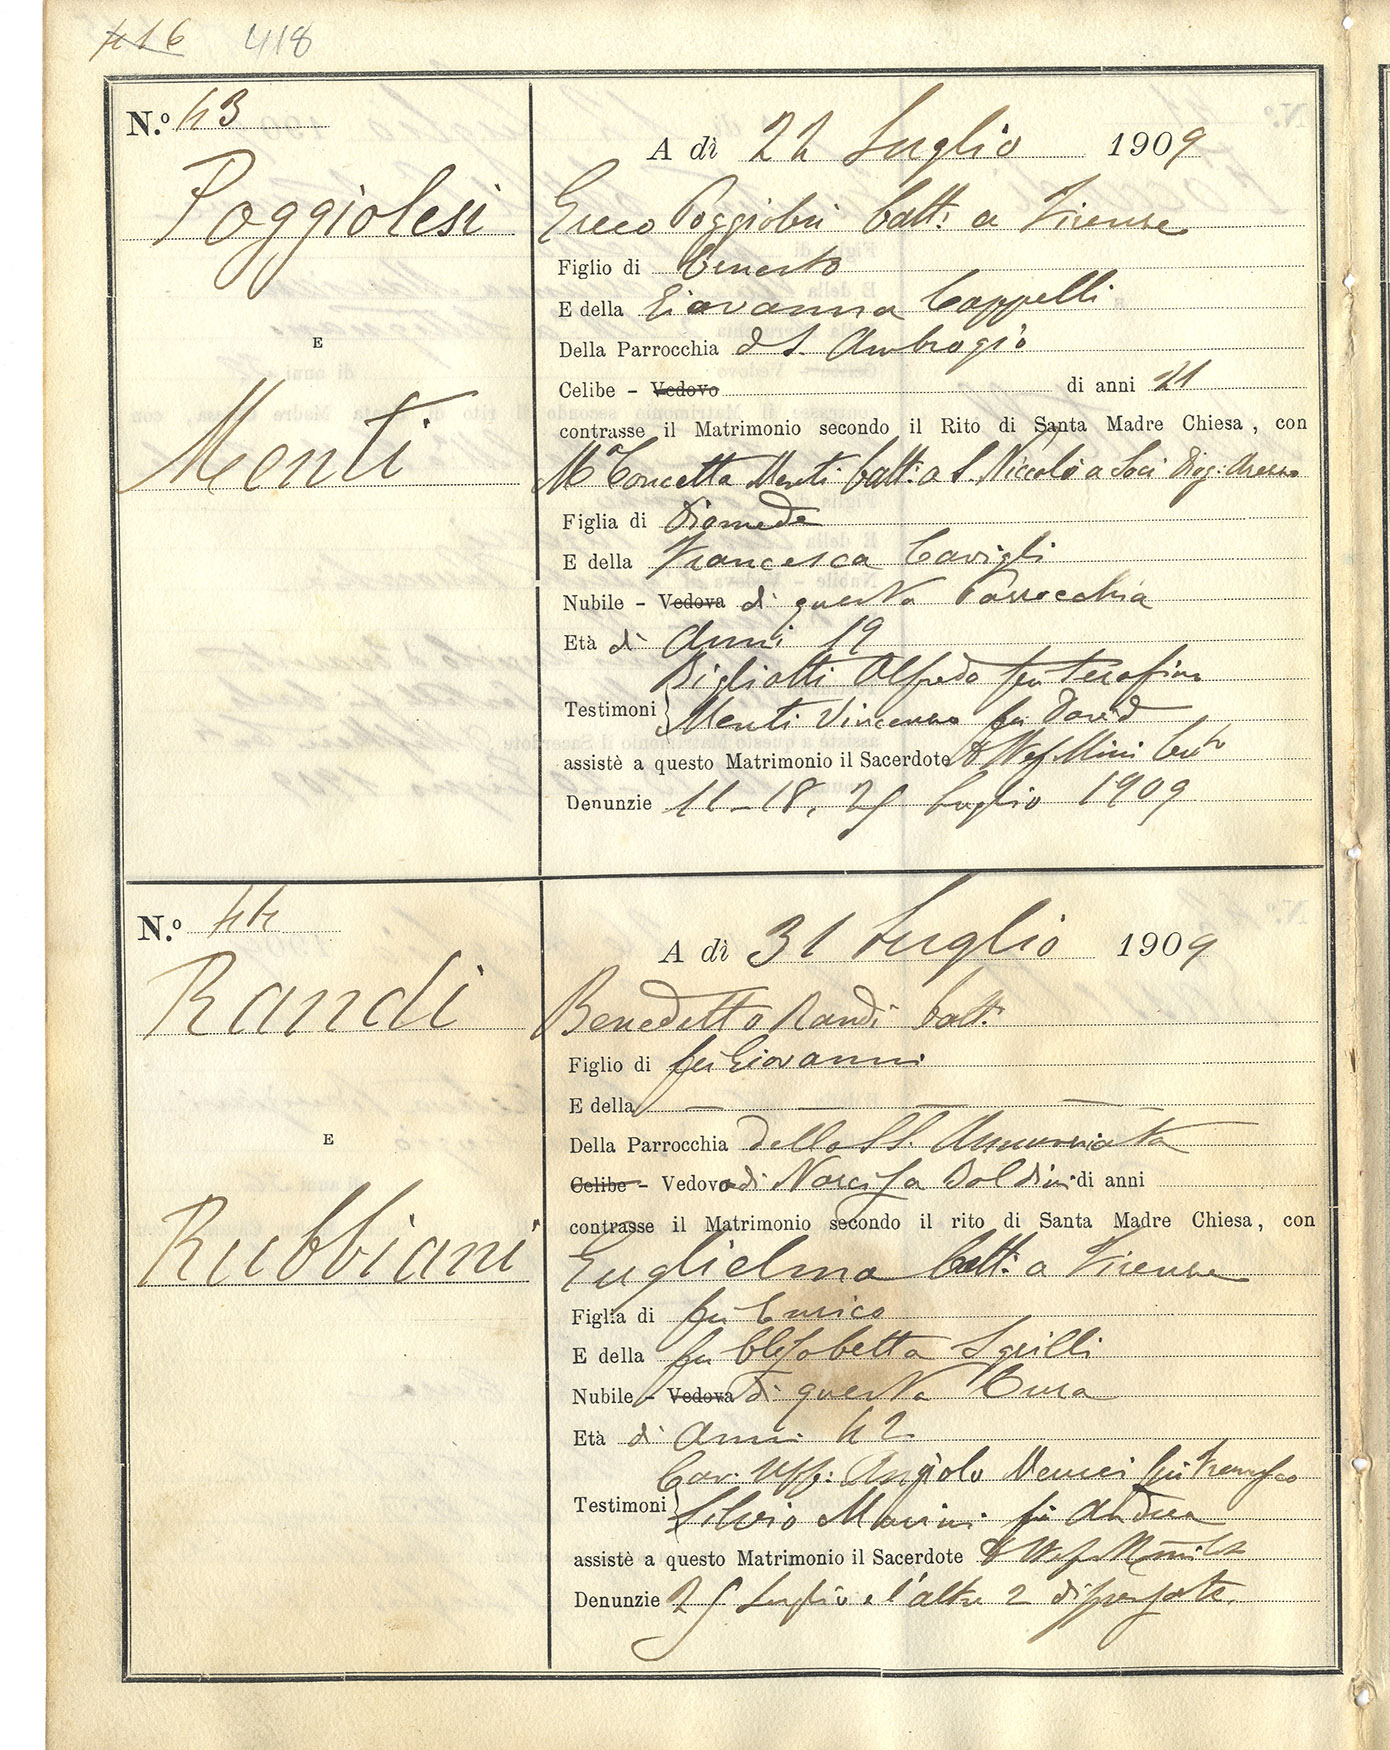 416 418
N.º 43
Poggiolesi
E
Menti
A dì 22 Luglio 1909
Greco Poggiolesi batt: a Firenze
Figlio di Ernesto
E della Giovanna Cappelli
Della Parrocchia di S. Ambrogio
Celibe – Vedovo di anni 21
contrasse il Matrimonio secondo il Rito di Santa Madre Chiesa, con
Mª Concetta Menti batt: a S. Niccolò a Soci Diog: Arezzo
Figlia di Diomede
E della Francesca Cavigli
Nubile – Vedova di questa Parrocchia
Età di Anni 19
Bigliotti Alfredo fu Serafino
Testimoni Menti Vincenzo fu David
assistè a questo Matrimonio il Sacerdote
Denunzie 11–18, 25 Luglio 1909
N.º 44
Randi
E
Rubbiani
A dì 31 Luglio 1909
Benedetto Randi batt:
Figlio di fu Giovanni
E della — — —
Della Parrocchia della SS. Annunziata
Celibe – Vedovo di Narcisa Baldini di anni
contrasse il Matrimonio secondo il rito di Santa Madre Chiesa, con
Guglielma batt: a Firenze
Figlia di fu Enrico
E della fu Elisabetta Sgrilli
Nubile – Vedova di questa Cura
Età di Anni 42
Cav: Uff: Angiolo Menici fu Francesco
Testimoni Silvio Marini fu Andrea
assistè a questo Matrimonio il Sacerdote
Denunzie 25 Luglio e l'altre 2 dispensate.